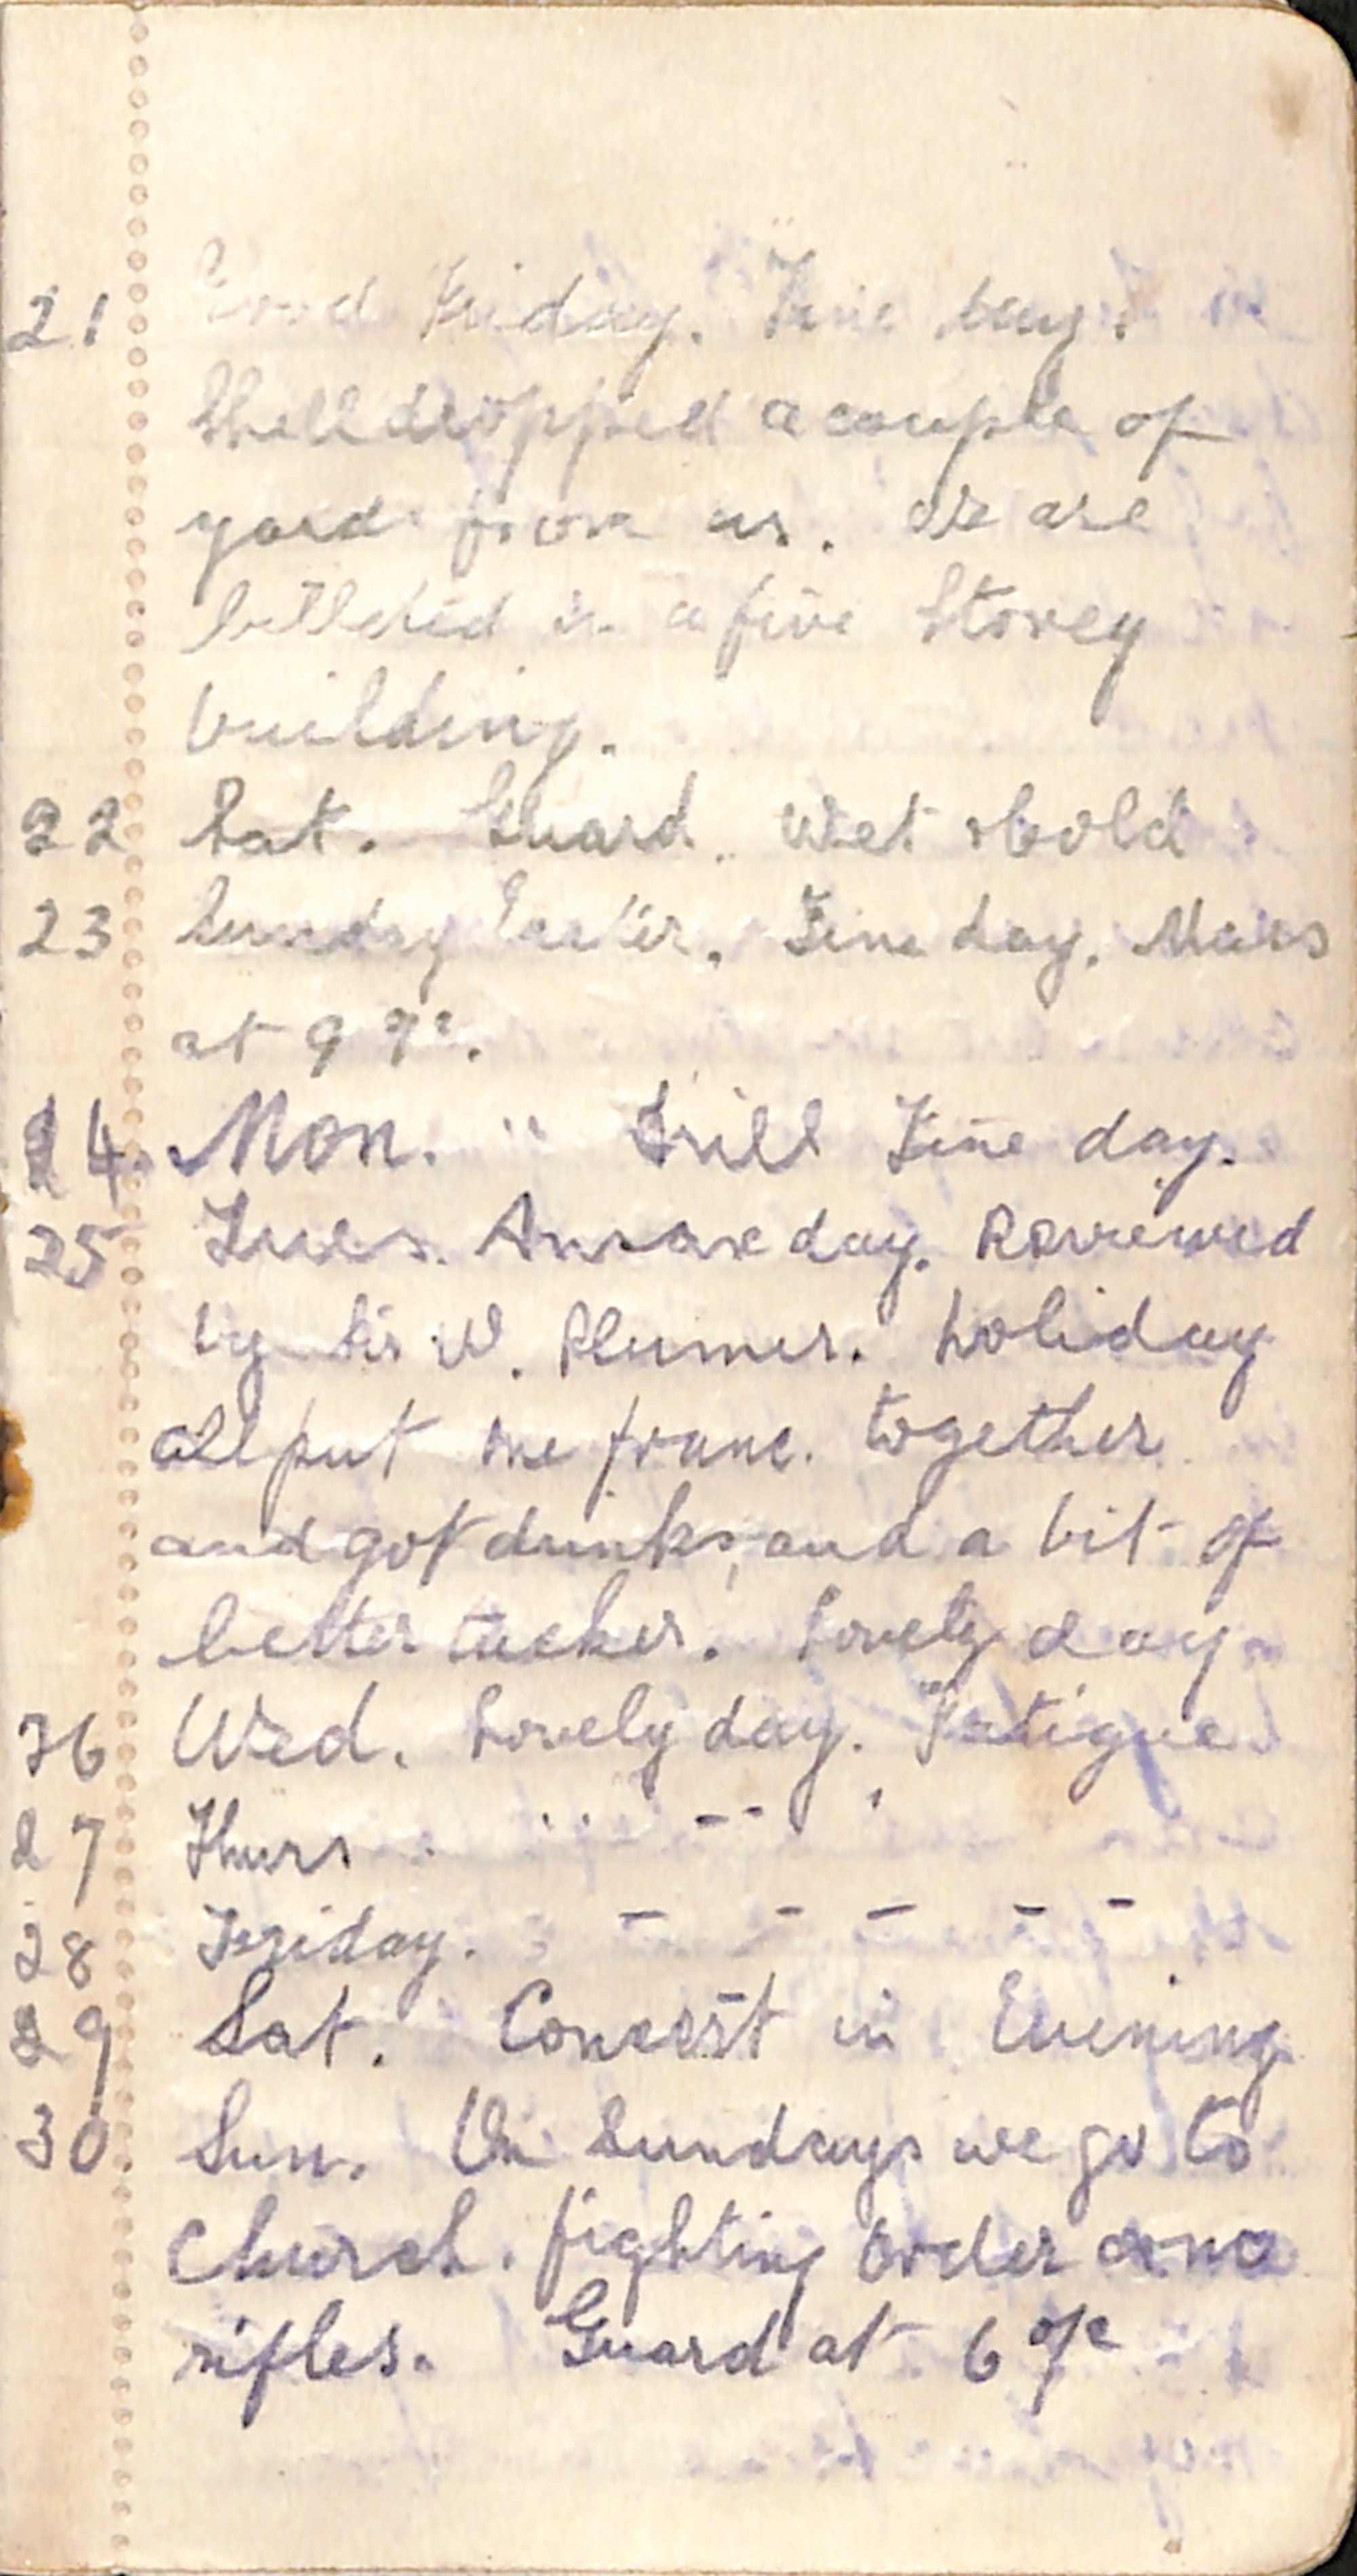 21 Good Friday. Fine day.
Shell dropped a couple of
yards from us. We are
billeted in a five Storey
building.
22 Sat. Guard. Wet & Cold
23 Sunday Easter. Fine day. Mass
at 9
24. Mon. " Drill Fine day.
25 Tues. Anzac day. Reviewed
by Sir W. Plumer. holiday
all put one franc. together
and got drinks, and a bit of
better tucker. Lovely day
26 Wed. Lovely day. Fatigue
27 Thurs . " "
28 Friday. - - - - -
29 Sat. Concert in Evening
30. Sun. On Sundays we go to
Church. fighting order and
rifles. Guard at 6 o/c